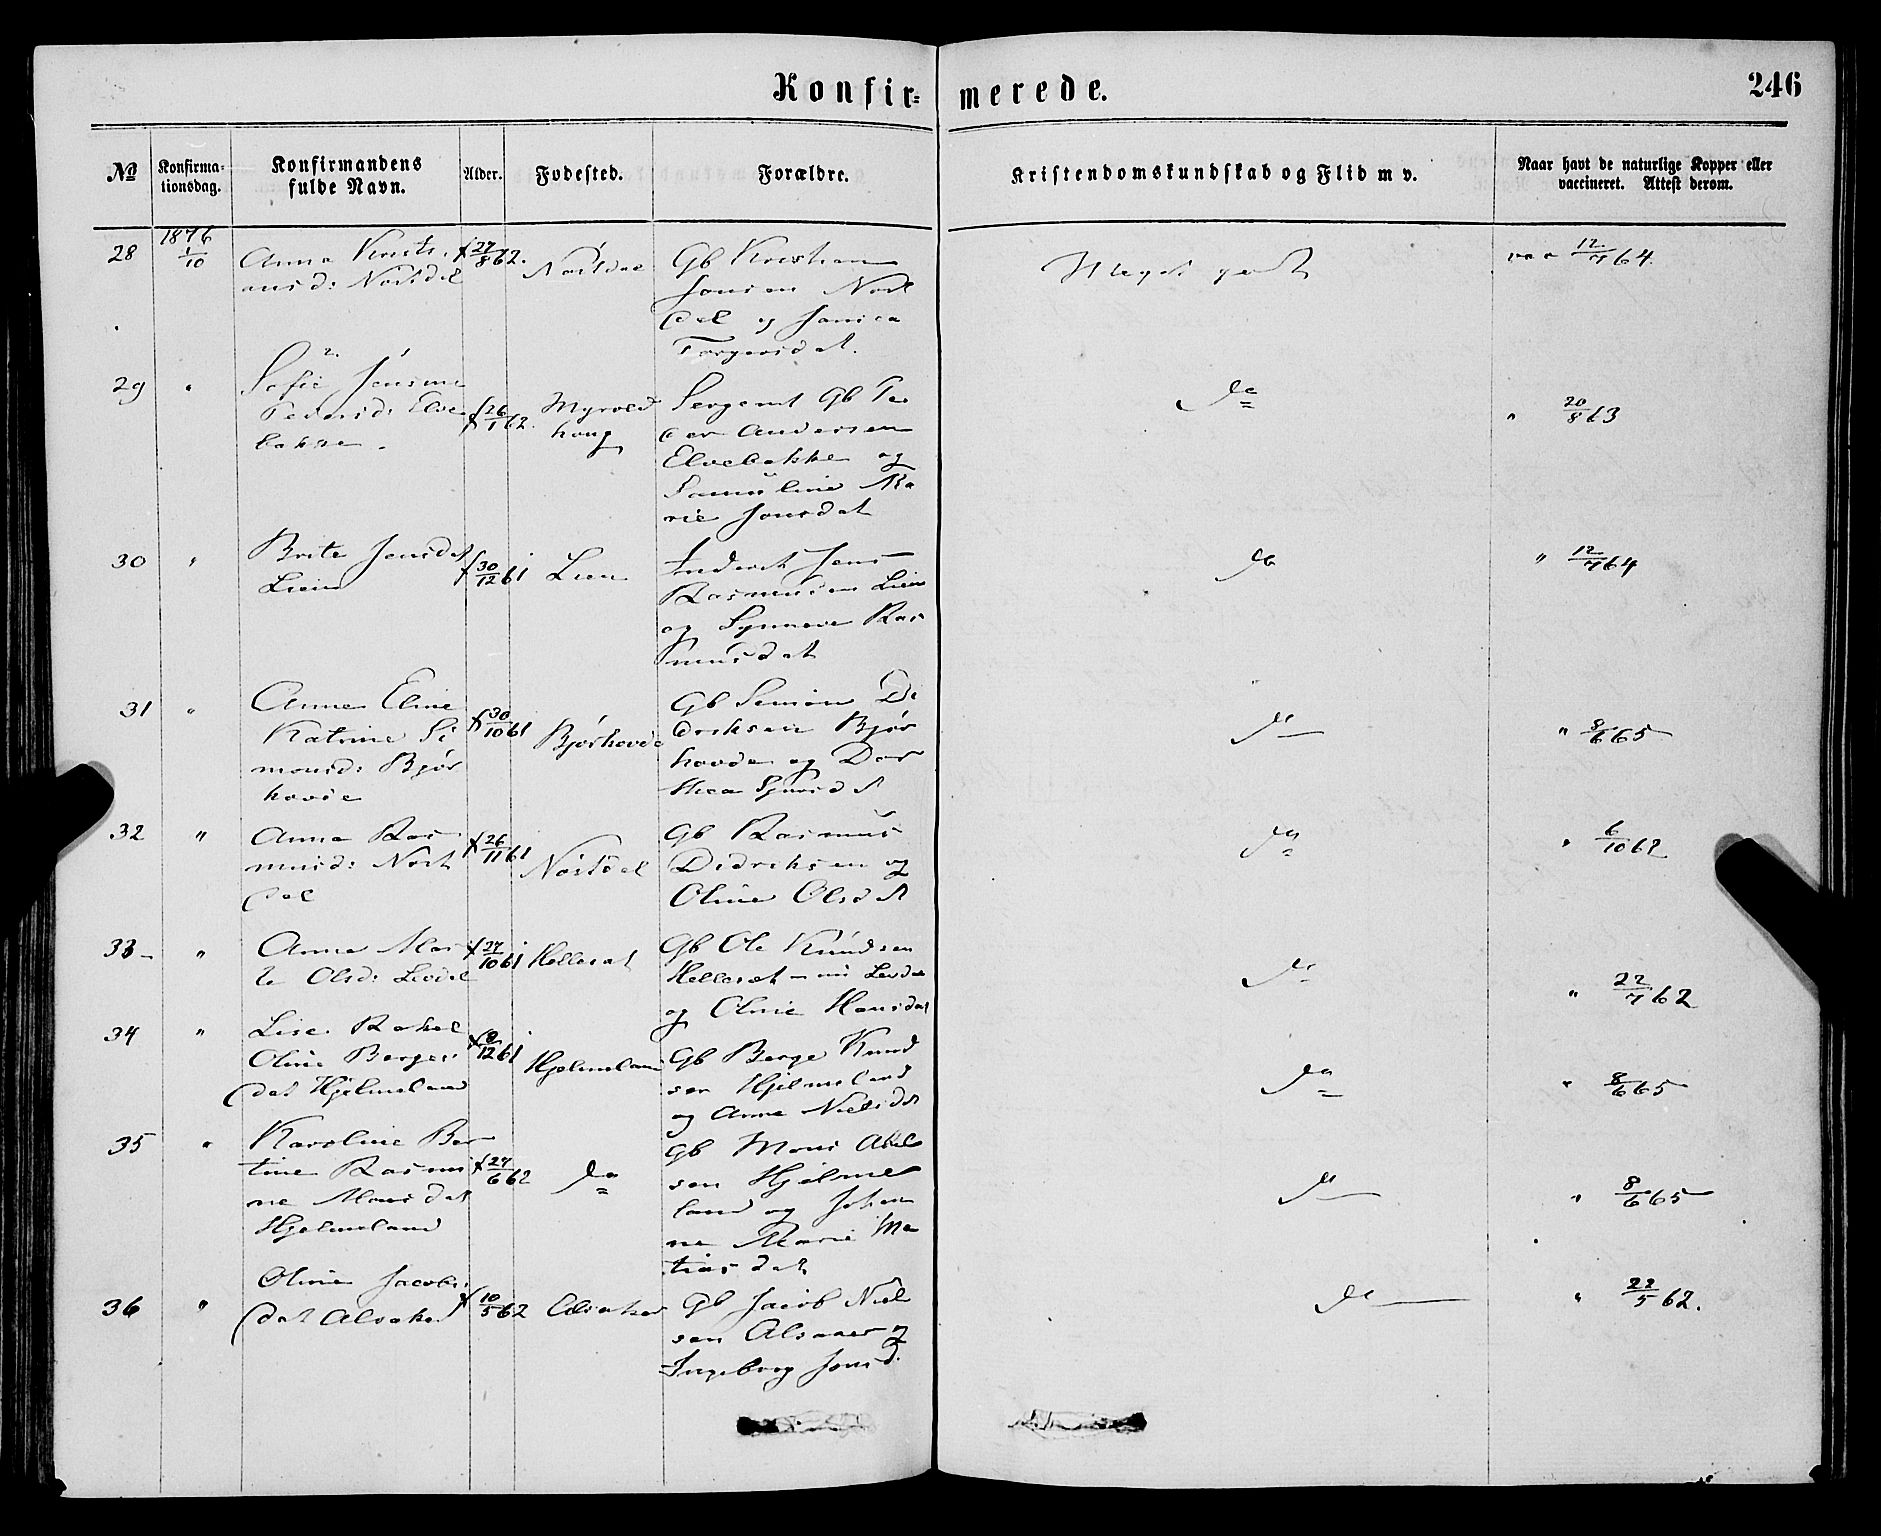 Konfirmerede.
246
№
Konfirma-
tionsdag.
Konfirmandens
fulde Navn.
Alder.
Fødested.
Forældre.
Kristendomskundskab og Flid m v.
Naar havt de naturlige Kopper eller
vaccineret. Attest derom.
28
1876
1/10
Anna Kristi
ansd: Nordal
f 27/8 62.
Gb Kristian
Jonsen
og
Meget godt
vac 12/7 64.
29
"
Sofie Jensine
Pedersd: Elve
bakke
f 26/1 62.
Myrvold
haug
Sergeant Gb Pe
der Andersen
Elvebakke og
Samuline Ma
rie Jonsdat
do
" 20/8 63
30
"
Brite Jensdat
Liein
f 30/12 61
Lien
Jens
Rasmussen Liein
og Synneve Ras
musdat
do
" 12/7 64
31
"
Anne Eline
Katrine Si
monsd: Bjør
hovde
f 30/10 61
Bjørhovde
Gb Simon Di
driksen Bjør
hovde og Dor
thea Sjursdt
do
" 8/6 65
32
"
Anna Ras
musd:
dal
f 26/11 61
Gb Rasmus
Didriksen og
Oline Olsdt
do
" 6/10 62
33
"
Anne Mar
te Olsd:
f 27/10 61
Hellesæt
Gb Ole Knudsen
Hellesæt
og Oline Hansdat
do
" 22/7 62
34
"
Lise Rakel
Oline Berges
dat Hjelmeland
f 8/12 61
Hjelmeland
Gb Berge Knud
sen Hjelmeland
og Anne Nielsdt
do
" 8/6 65
35
"
Karoline Ber
tine Rasmi
ne Monsdat
Hjelmeland
f 27/6 62
do
Gb Mons Abel
sen Hjelme
land og Johan
ne Marie Ma
tiasdat
do
" 8/6 65
36
"
Oline Jacobs
dat Alsaker
f 10/5 62
Alsaker
Gb Jacob Niel
sen Alsaker og
Ingeborg Jonsd.
do
" 22/5 62.